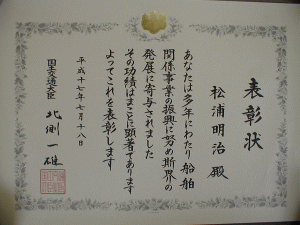 表彰状
松浦明治 殿
あなたは多年にわたり船舶
関係事業の振興に努め斯界の
発展に寄与されました
その功績はまことに顕著であります
よってこれを表彰します
平成十七年七月十八日
国土交通大臣
北側一雄